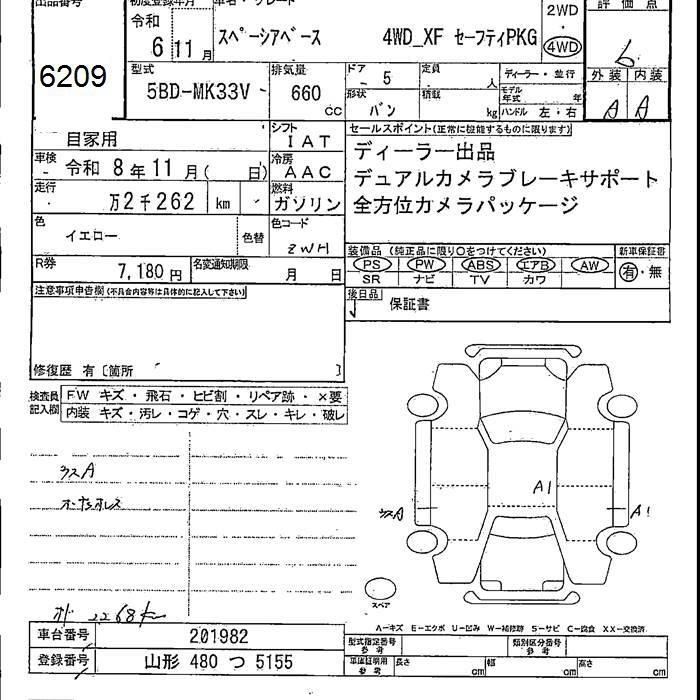 出品番号 初度登録年月 車名・グレード 評価点
6209
令和 6 11月
スペーシアベース 4WD_XF セーフティPKG
2WD
・
4WD
6
外装 内装
A A
型式 5BD-MK33V
排気量 660 CC
ドア - 5
定員 人
ディーラー・並行
形状 バン
積載 kg
モデル年式 年
ハンドル 左・右
自家用
シフト IAT
車検 令和 8年11月( 日)
冷房 AAC
走行 万2千262 km
燃料 ガソリン
色 イエロー 色替
色コード ZWH
R券 7,180円
名変通知期限 月 日
セールスポイント(正常に機能するものに限ります)
ディーラー出品
デュアルカメラブレーキサポート
全方位カメラパッケージ
装備品 (純正品に限り○をつけてください) 新車保証書
PS PW ABS エアB AW 有・無
SR ナビ TV カワ
後日品 保証書
注意事項申告欄(不具合内容等は具体的に記入して下さい)
修復歴 有〔箇所 〕
検査員記入欄
FW キズ・飛石・ヒビ割・リペア跡・×要
内装 キズ・汚レ・コゲ・穴・スレ・キレ・破レ
A1
A1
スペア
2268km
A−キズ E−エクボ U−凹み W−補修跡 S−サビ C−腐食 XX−交換済
車台番号 201982
登録番号 山形 480 つ 5155
型式指定番号 参考 類別区分番号 参考
車庫証明用 参考 長さ cm 幅 cm 高さ cm